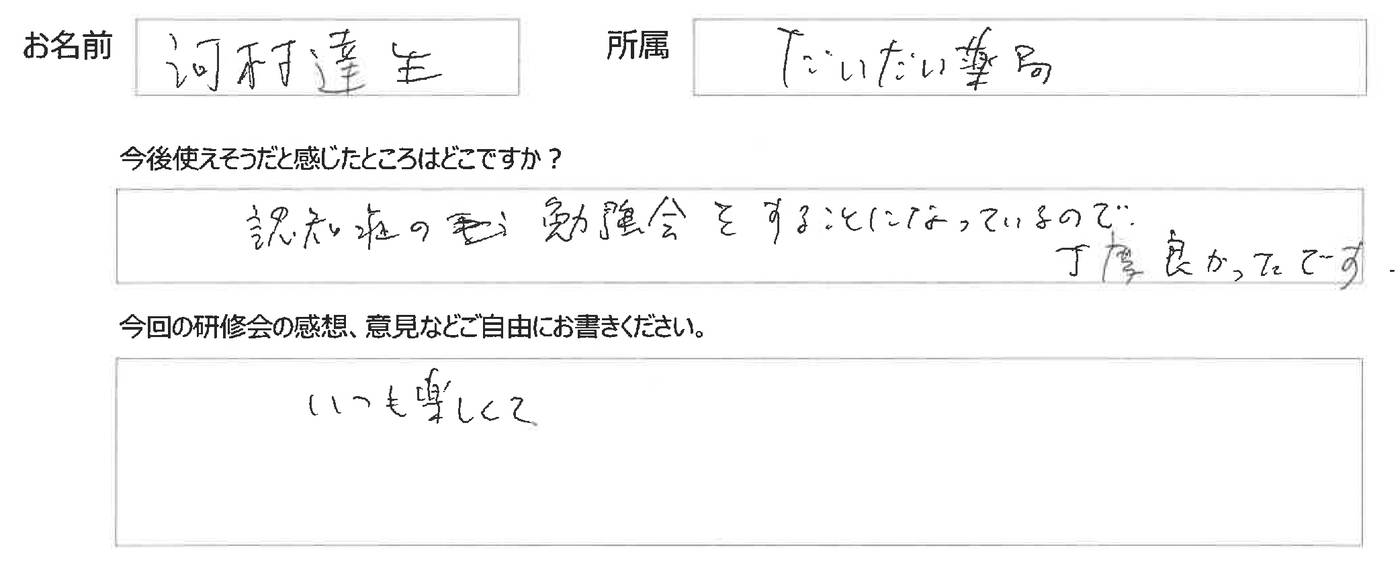 お名前 河村達生 所属 だいだい薬局
今後使えそうだと感じたところはどこですか？
認知症の勉強会をすることになっているので
丁度良かったです.
今回の研修会の感想、意見などご自由にお書きください。
いつも楽しくて